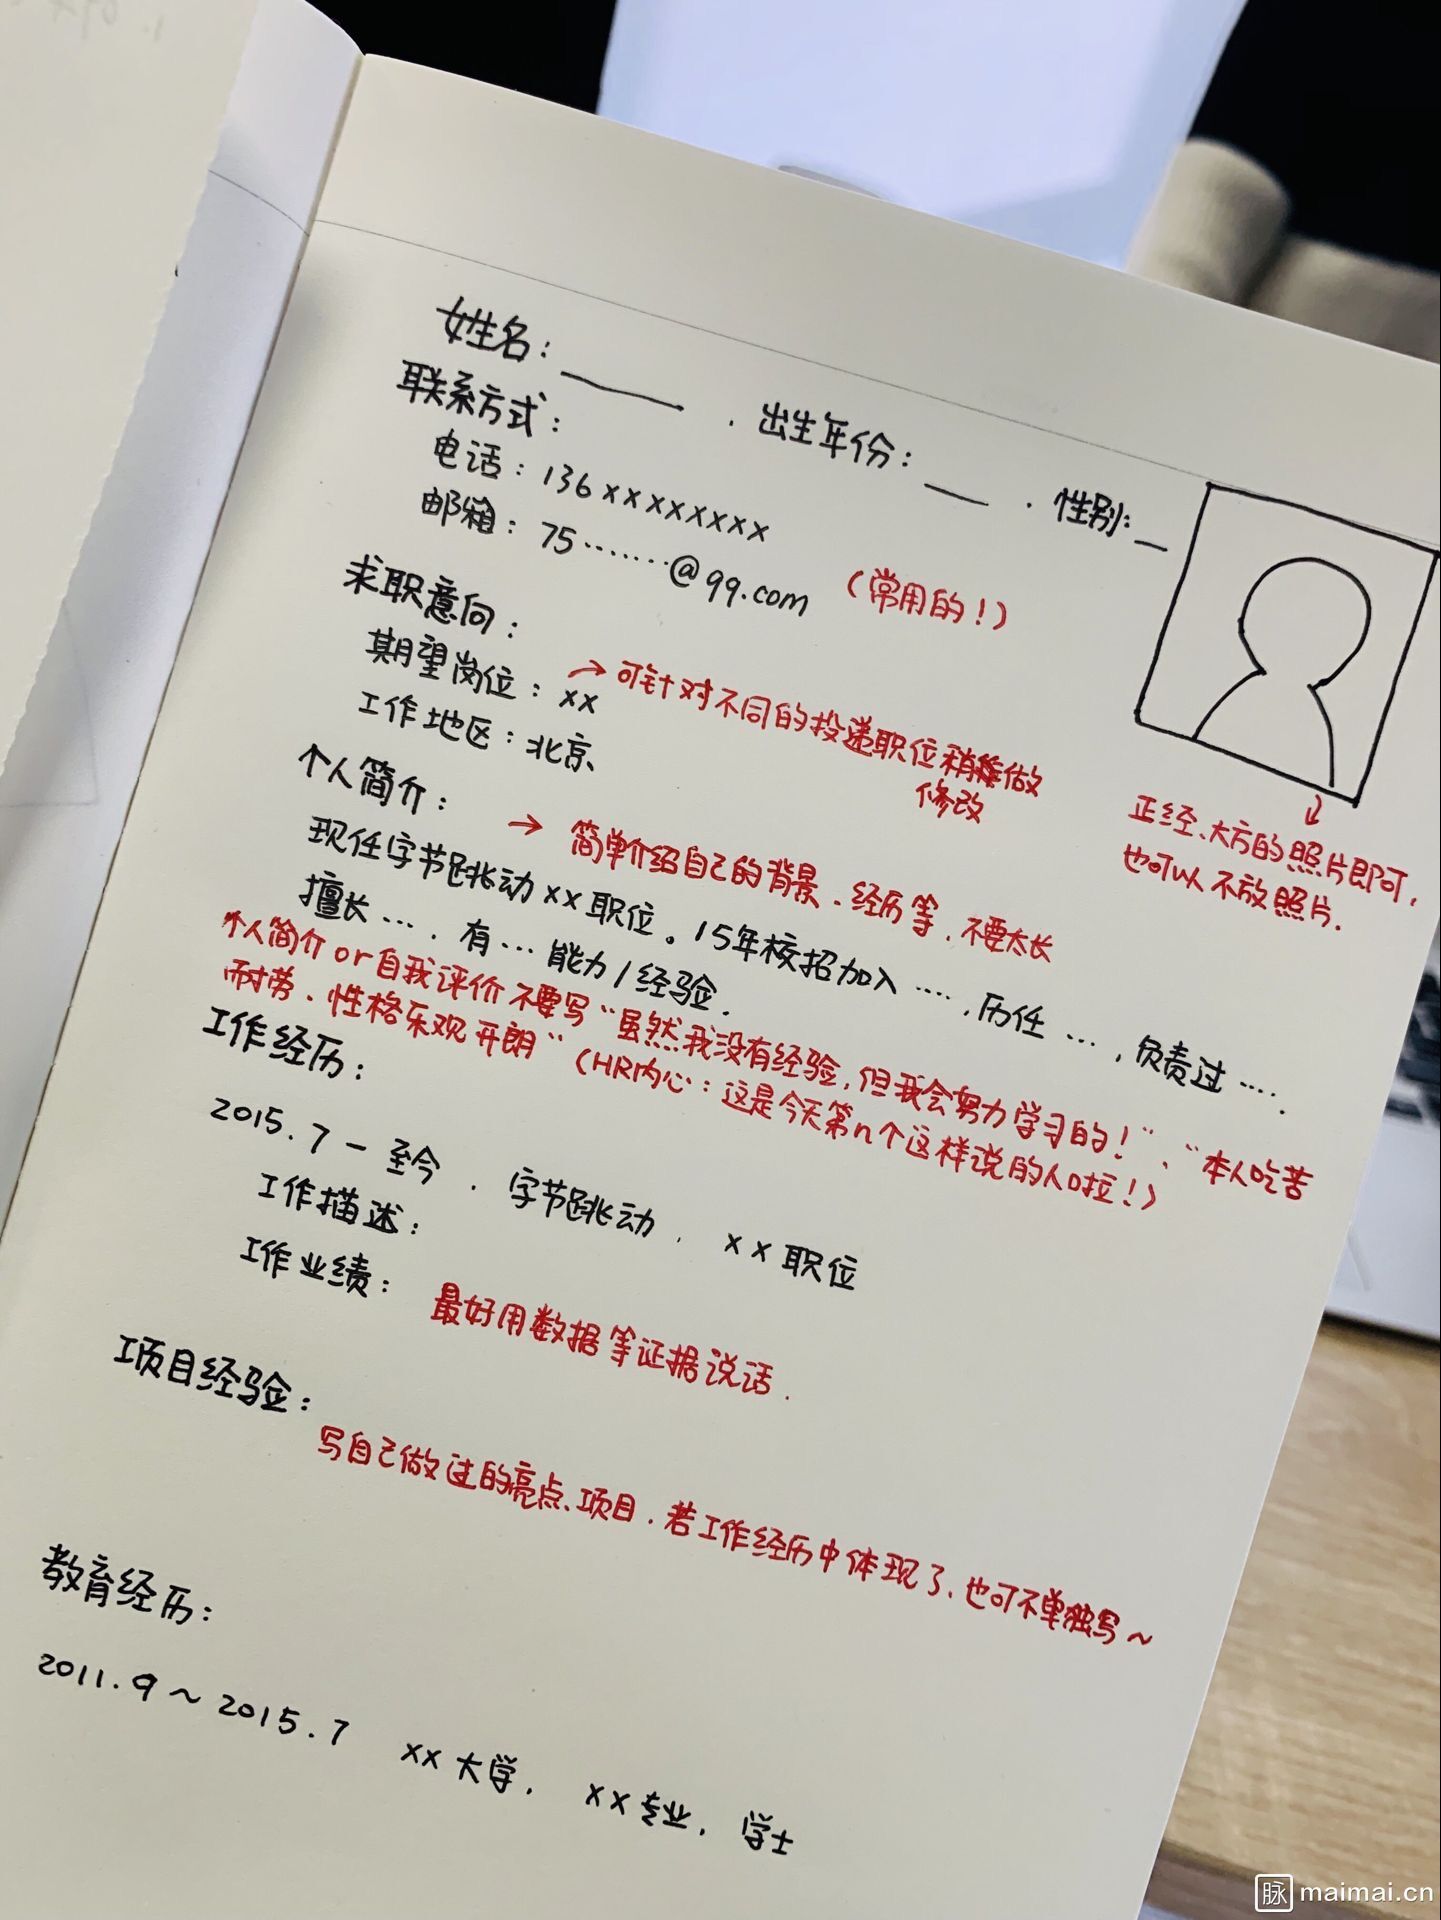 姓名：____ . 出生年份：___ . 性别：_
联系方式：
电话：136xxxxxxxx
邮箱：75·······@qq.com （常用的！）
求职意向：
期望岗位：xx → 可针对不同的投递职位稍做
修改
工作地区：北京
正经、大方的照片即可，
也可以不放照片.
个人简介：→ 简单介绍自己的背景、经历等，不要太长
现任字节跳动xx职位。15年校招加入 …. ，历任 … ，负责过 ….
擅长 … . 有 … 能力/经验.
个人简介or自我评价不要写“虽然我没有经验，但我会努力学习的！”、“本人吃苦
耐劳、性格乐观开朗”（HR内心：这是今天第n个这样说的人啦！）
工作经历：
2015.7 - 至今 . 字节跳动 . xx职位
工作描述：
工作业绩：最好用数据等证据说话.
项目经验：
写自己做过的亮点、项目. 若工作经历中体现了，也可不单独写~
教育经历：
2011.9 ~ 2015.7 xx大学， xx专业， 学士
脉 maimai.cn